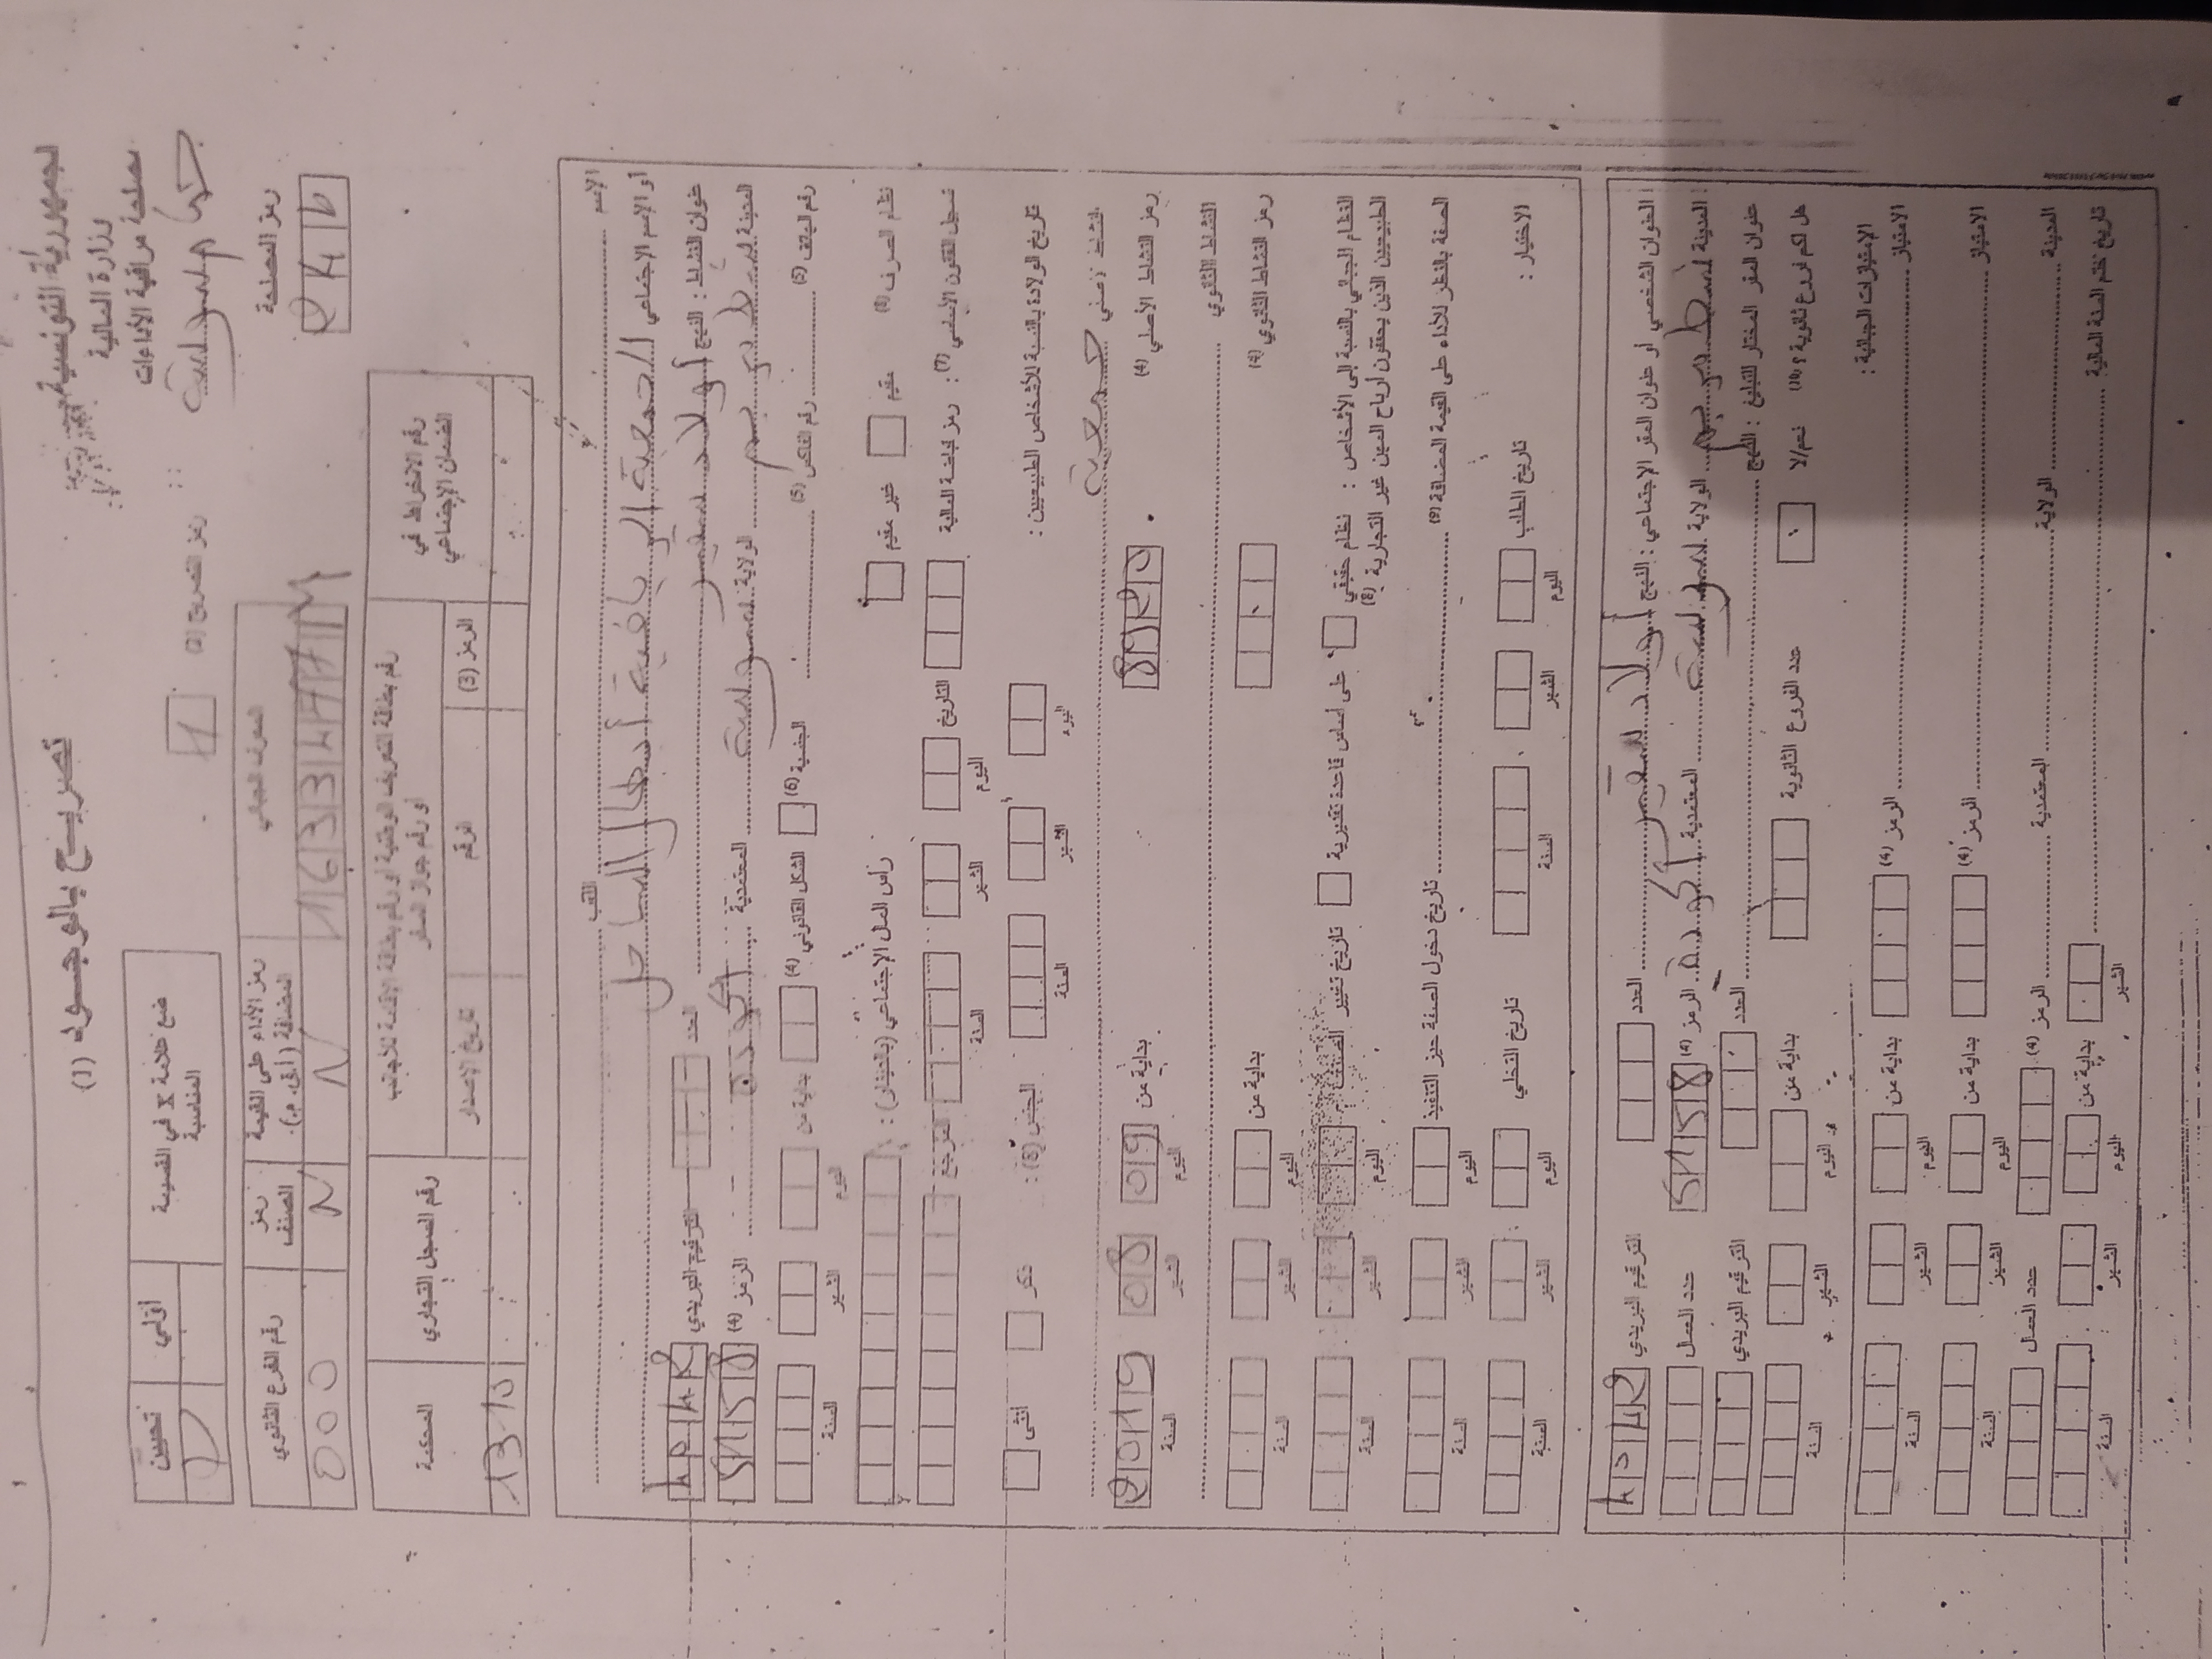 الجمهورية التونسية
وزارة المالية
مصلحة مراقبة الأداءات
سوسة
رمز المصلحة
تصريح بالوجود (1)
رمز التصريح (2)
1
ضع علامة X في القسيمة المناسبة
أولي
تحيين
المعرف الجبائي
رمز الأداء على القيمة المضافة (أ.ق.م.)
رمز الصنف
رقم الفرع الثانوي
N
N
000
رقم الانخراط في الضمان الإجتماعي
رقم بطاقة التعريف الوطنية أو رقم بطاقة الإقامة للأجانب أو رقم جواز السفر
رقم السجل التجاري
المحكمة
الرمز (3)
الرقم
تاريخ الإصدار
الإسم
اللقب
أو الإسم الإجتماعي الجمعية الرياضية أبطال الساحل
عنوان النشاط : النهج أولاد
العدد
الترقيم البريدي
المدينة
الولاية سوسة
المعتمدية أكودة
الرمز (4)
رقم الهاتف (5)
رقم الفاكس (5)
الجنسية (6)
الشكل القانوني (4)
بداية من
اليوم
الشهر
السنة
نظام الصرف (8)
مقيم
غير مقيم
رأس المال الإجتماعي (بالدينار) :
سجل القانون الأساسي (7) : رمز قباضة المالية
التاريخ
اليوم
الشهر
السنة
المرجع
تاريخ الولادة بالنسبة للأشخاص الطبيعيين :
اليوم
الشهر
السنة
الجنس (8) :
ذكر
أنثى
النشاط الأصلي جمعية
رمز النشاط الأصلي (4)
بداية من
09
08
2019
اليوم
الشهر
السنة
النشاط الثانوي
رمز النشاط الثانوي (4)
بداية من
اليوم
الشهر
السنة
النظام الجبائي بالنسبة إلى الأشخاص : نظام حقيقي
على أساس قاعدة تقديرية
تاريخ تغيير النظام
الطبيعيين الذين يحققون أرباح المهن غير التجارية (8)
اليوم
الشهر
السنة
الصفة بالنظر للأداء على القيمة المضافة (9)
تاريخ دخول الصفة حيز التنفيذ
اليوم
الشهر
السنة
الاختيار :
تاريخ الطلب
تاريخ التخلي
اليوم
الشهر
السنة
اليوم
الشهر
السنة
العنوان الشخصي أو عنوان المقر الإجتماعي : النهج أولاد
العدد
الترقيم البريدي
المدينة
الولاية سوسة
المعتمدية أكودة
الرمز (4)
عدد العمال
عنوان المقر المختار للتبليغ : النهج
العدد
الترقيم البريدي
هل لكم فروع ثانوية ؟ (10) نعم/لا
عدد الفروع الثانوية
بداية من
اليوم
الشهر
السنة
الإمتيازات الجبائية :
الإمتياز
الرمز (4)
بداية من
اليوم
الشهر
السنة
الإمتياز
الرمز (4)
بداية من
اليوم
الشهر
السنة
المدينة
الولاية
المعتمدية
الرمز (4)
عدد العمال
تاريخ ختم السنة المالية
الشهر
بداية من
اليوم
الشهر
السنة